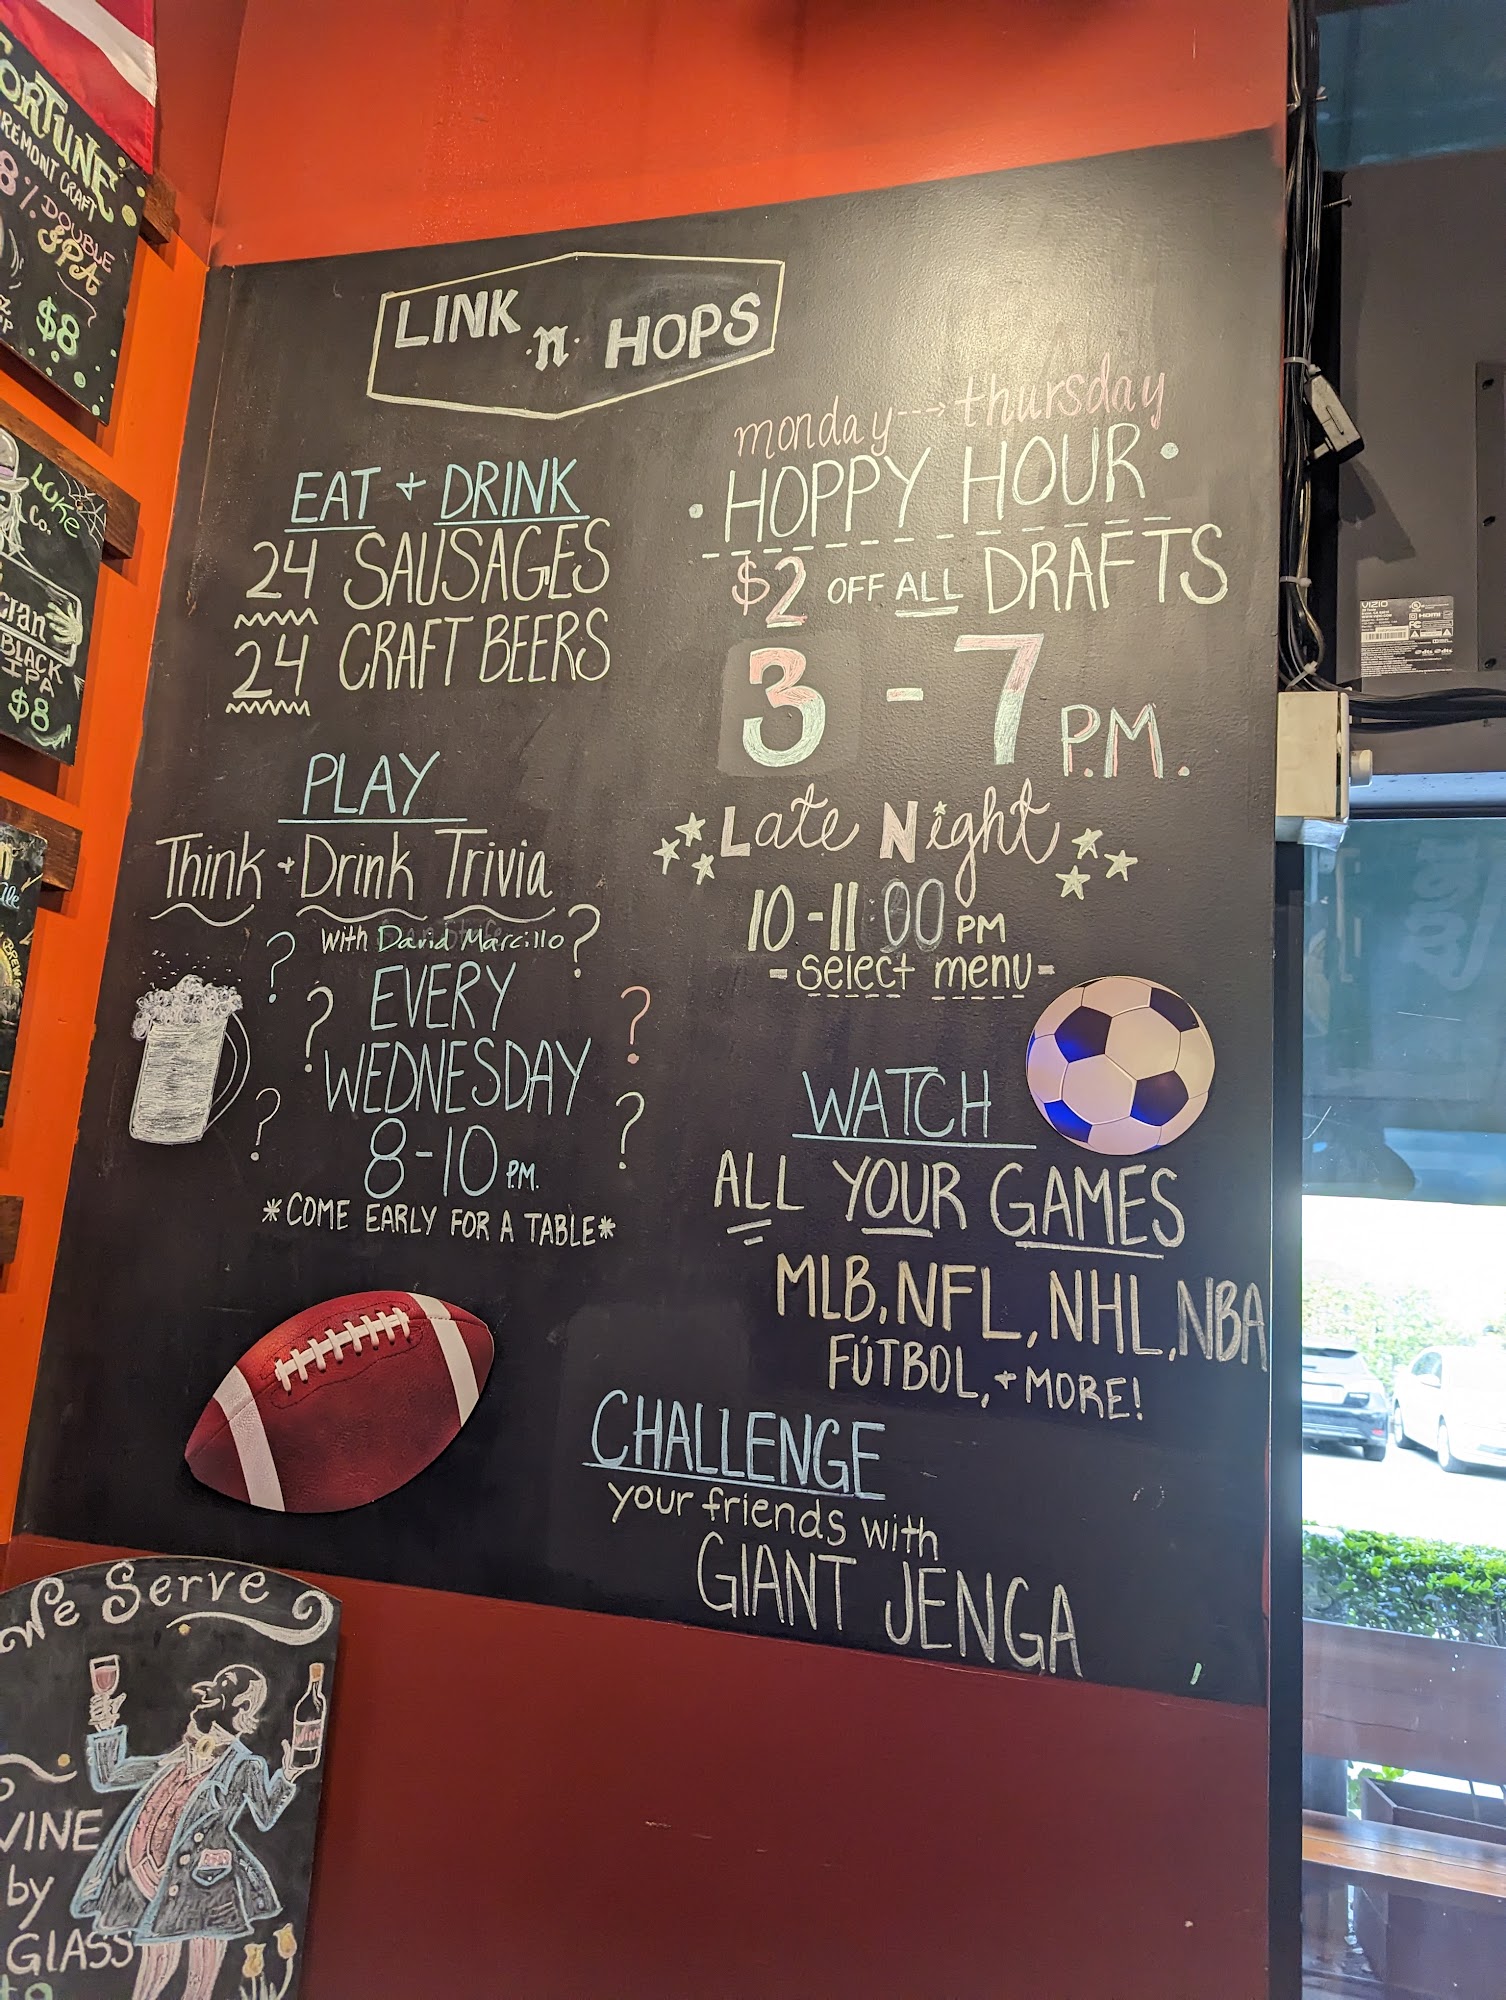 LINK n HOPS
EAT + DRINK
24 SAUSAGES
24 CRAFT BEERS
PLAY
Think + Drink Trivia
with David Marcillo
EVERY
WEDNESDAY
8-10 P.M.
*COME EARLY FOR A TABLE*
monday --→ thursday
• HOPPY HOUR •
$2 OFF ALL DRAFTS
3 - 7 P.M.
Late Night
10-11:00 PM
-select menu-
WATCH
ALL YOUR GAMES
MLB, NFL, NHL, NBA
FÚTBOL, + MORE!
CHALLENGE
your friends with
GIANT JENGA
FORTUNE
CRAFT
8%
DOUBLE
IPA
$8
LUKE
Co.
BLACK
IPA
$8
We Serve
by
GLASS
VIZIO
HDMI